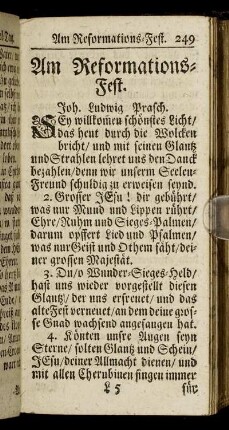 Am Reformations-Fest. 249
Am Reformations-
Fest.
Joh. Ludwig Prasch.
SEy willkom̃en schönstes Licht/
das heut durch die Wolcken
bricht/ und mit seinen Glantz
und Strahlen lehret uns den Danck
bezahlen/ denn wir unserm Seelen-
Freund schuldig zu erweisen seynd.
2. Grosser JEsu! dir gebührt/
was nur Mund und Lippen rührt/
Ehre/ Ruhm und Sieges-Palmen/
darum opffert Lied und Psalmen/
was nur Geist und Othem fäht/ dei-
ner grossen Majestät.
3. Du/ o Wunder-Sieges-Held/
hast uns wieder vorgestellt diesen
Glantz/ der uns erfreuet/ und das
alte Fest verneuet/ an dem deine gros-
se Gnad wachsend angefangen hat.
4. Könten unsre Augen seyn
Sterne/ solten Glantz und Schein/
JEsu/ deiner Allmacht dienen/ und
mit allen Cherubinen singen immer
L 5 für